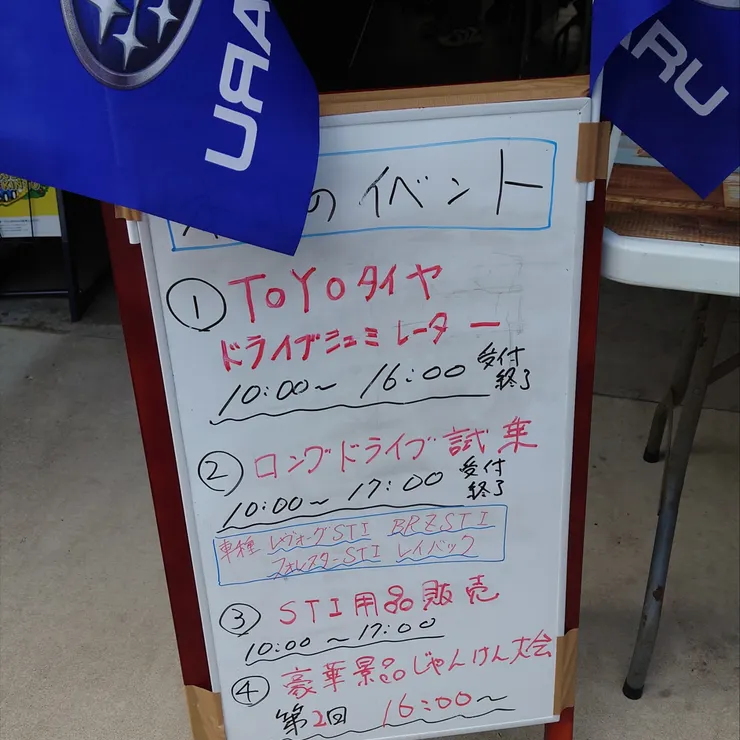 URAU
ARU
のイベント
① TOYOタイヤ
ドライブシュミレーター
10:00～ 16:00 受付終了
② ロングドライブ試乗
10:00～ 17:00 受付終了
車種 レヴォーグSTI BRZ STI
フォレスターSTI レイバック
③ STI用品販売
10:00～17:00
④ 豪華景品じゃんけん大会
第2回 16:00～